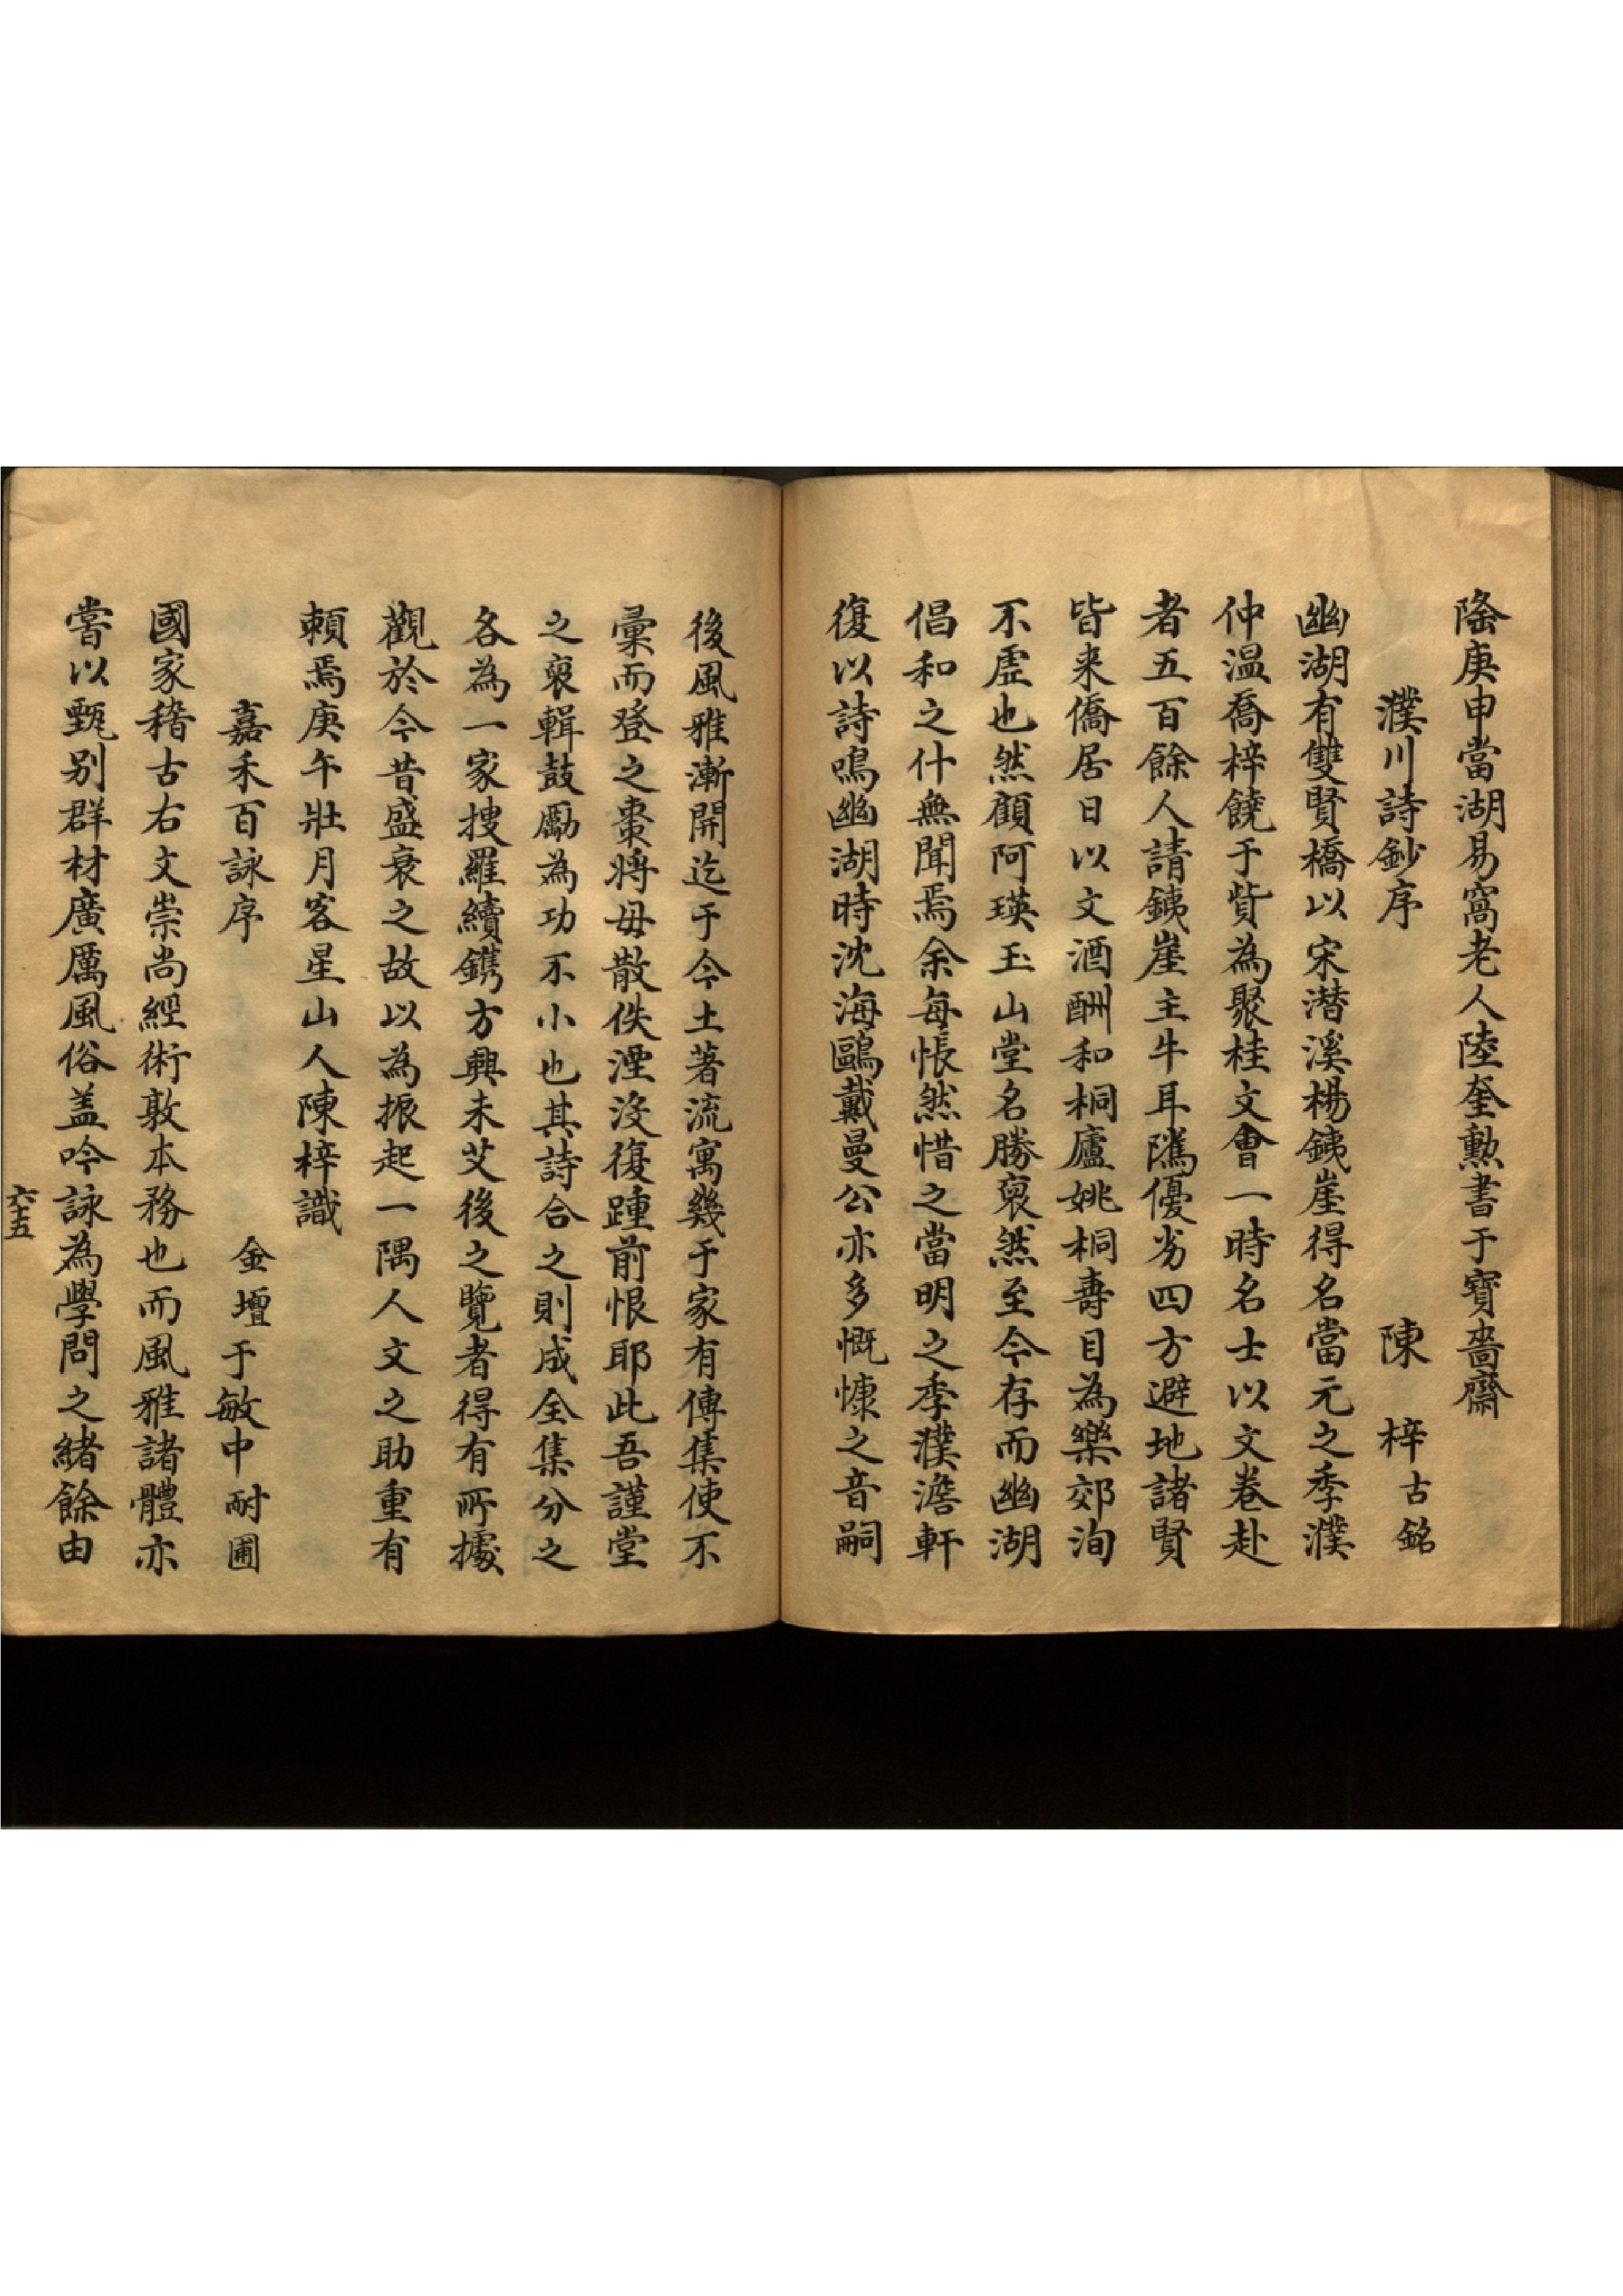 隆庚申當湖易窩老人陸奎勲書于寶嗇齋
濮川詩鈔序　陳　梓古銘
幽湖有雙賢橋以宋潜溪楊鐵崖得名當元之季濮
仲温喬梓饒于貲為聚桂文會一時名士以文卷赴
者五百餘人請鐵崖主牛耳隲優劣四方避地諸賢
皆来僑居日以文酒酬和桐廬姚桐壽目為樂郊洵
不虚也然顧阿瑛玉山堂名勝裒然至今存而幽湖
倡和之什無聞焉余每悵然惜之當明之季濮澹軒
復以詩鳴幽湖時沈海鷗戴曼公亦多慨慷之音嗣
後風雅漸開迄于今土著流寓幾于家有傳集使不
彙而登之棗將毋散佚湮沒復踵前恨耶此吾謹堂
之裒輯鼓勵為功不小也其詩合之則成全集分之
各為一家搜羅續鐫方興未艾後之覽者得有所據
觀於今昔盛衰之故以為振起一隅人文之助重有
頼焉庚午壯月客星山人陳梓識
嘉禾百詠序　金壇于敏中耐圃
國家稽古右文崇尚經術敦本務也而風雅諸體亦
嘗以甄别群材廣厲風俗盖吟詠為學問之緒餘由
六十五